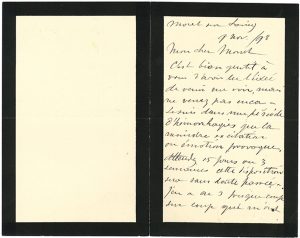 Moret sur Loing
9 nov /98
Mon cher Moret
C'est bien gentil à
vous d'avoir eu l'idée
de venir me voir, mais
ne venez pas encore
je suis dans une période
d'hémorrhagies que la
moindre excitation
ou émotion provoque,
Attendez 15 jours ou 3
semaines cette disposition
sera sans doute passée.
J'en ai eu 3 presque coup
sur coup qui m'ont